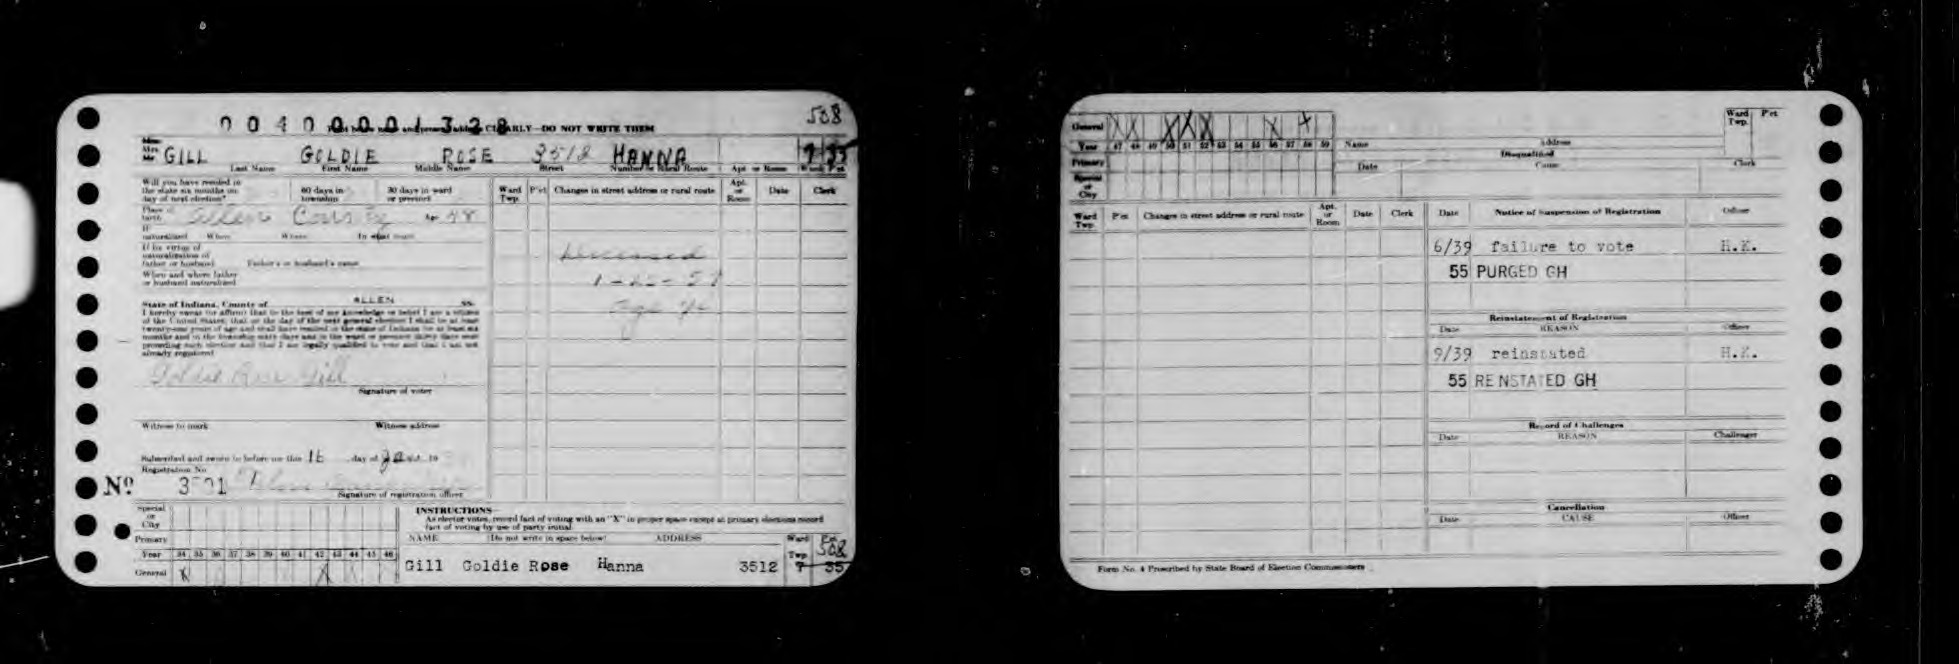 508
00400001328
Print below name and present address CLEARLY—DO NOT WRITE THEM
Miss
Mrs.
Mr. GILL GOLDIE ROSE 3512 HANNA 7 35
Last Name First Name Middle Name Street Number or Rural Route Apt. or Room Ward Pct
Will you have resided in
the state six months on
day of next election?
60 days in
township
30 days in ward
or precinct
Place of
birth Allen County Age 48
If
naturalized Where When In what court
If by virtue of
naturalization of
father or husband Father's or husband's name
When and where father
or husband naturalized
State of Indiana, County of ALLEN ss.
I hereby swear (or affirm) that to the best of my knowledge or belief I am a citizen
of the United States; that on the day of the next general election I shall be at least
twenty-one years of age and shall have resided in the state of Indiana for at least six
months and in the township sixty days and in the ward or precinct thirty days next
preceding such election and that I am legally qualified to vote and that I am not
already registered
Goldie Rose Gill
Signature of voter
Witness to mark Witness address
Subscribed and sworn to before me this 16 day of 19
Registration No.
No 3
Signature of registration officer
Ward
Twp. P'ct Changes in street address or rural route Apt.
or
Room Date Clerk
Deceased
age
Special
or
City
Primary
Year 34 35 36 37 38 39 40 41 42 43 44 45 46
General X X
INSTRUCTIONS
As elector votes, record fact of voting with an "X" in proper space except at primary elections record
fact of voting by use of party initial.
NAME (Do not write in space below) ADDRESS Ward
Twp. Pct
508
Gill Goldie Rose Hanna 3512 7 35
General X X X X X X X
Year 47 48 49 50 51 52 53 54 55 56 57 58 59
Primary
Special
or
City
Name Address Ward
Twp. P'ct
Disqualified
Date Cause Clerk
Ward
Twp. P'ct Changes in street address or rural route Apt.
or
Room Date Clerk
Date Notice of Suspension of Registration Officer
6/39 failure to vote H.K.
55 PURGED GH
Reinstatement of Registration
Date REASON Officer
9/39 reinstated H.K.
55 REINSTATED GH
Record of Challenges
Date REASON Challenger
Cancellation
Date CAUSE Officer
Form No. 4 Prescribed by State Board of Election Commissioners